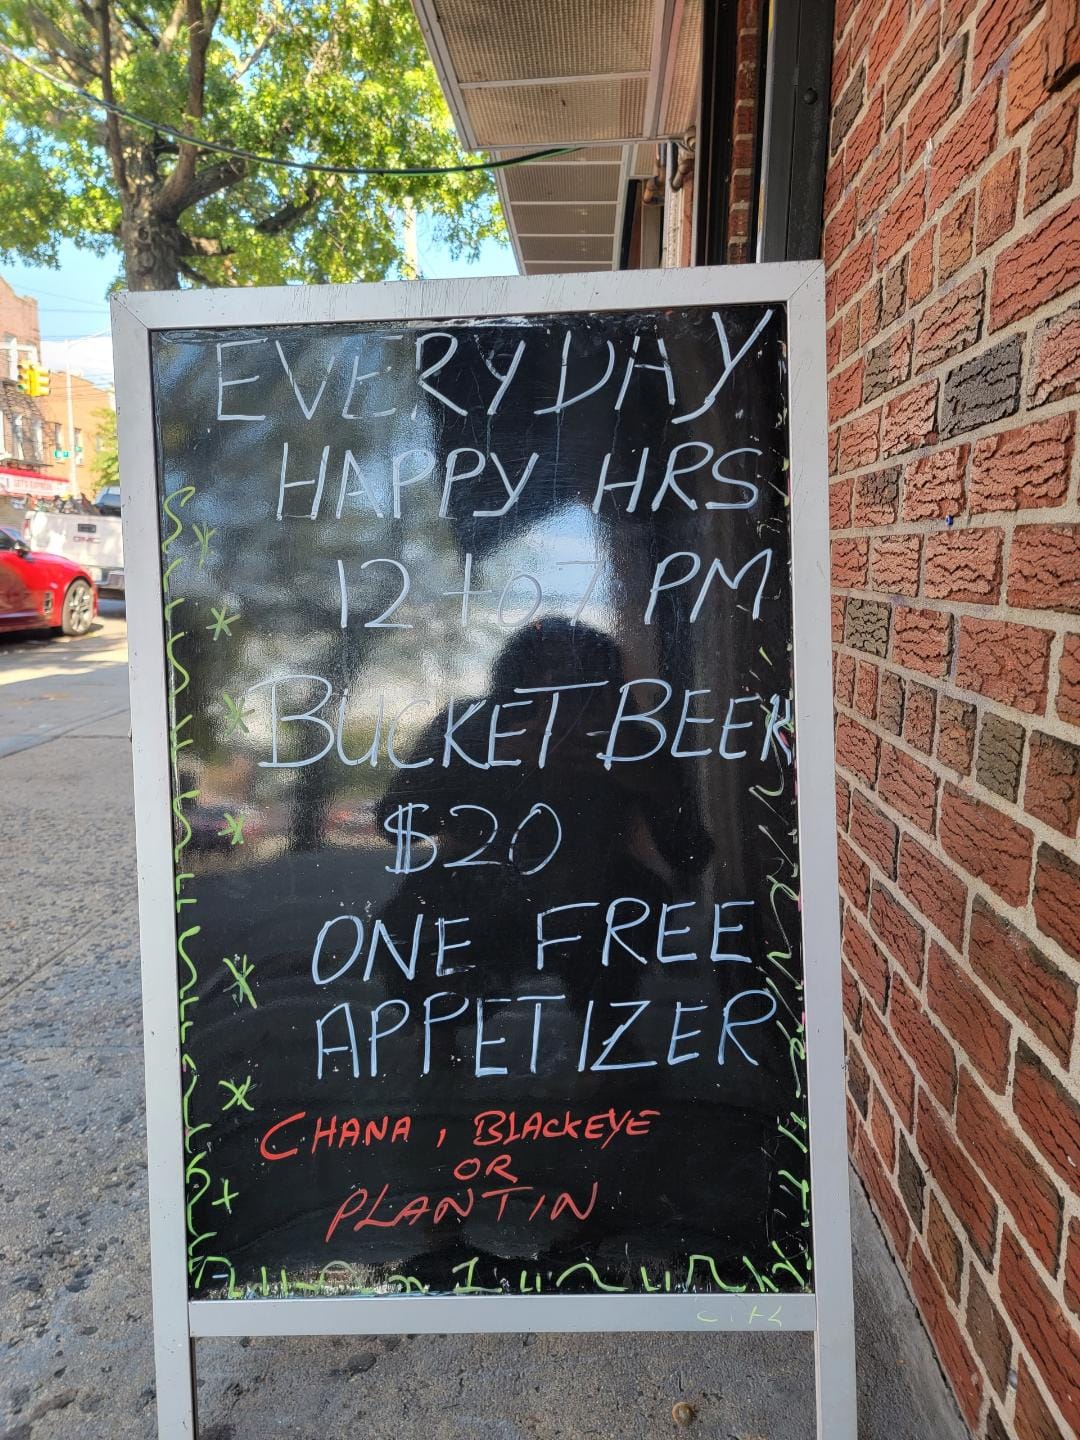 EVERYDAY
HAPPY HRS
12 to 7 PM
BUCKET BEER
$20
ONE FREE
APPETIZER
CHANA, BLACKEYE
OR
PLANTIN
GMC